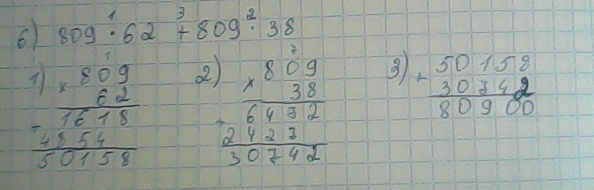 б) 809 · 62 + 809 · 38
1 3 2
1) × 809
62
1618
+ 4854
50158
2) × 809
38
6472
+ 2427
30742
3) + 50158
30742
80900